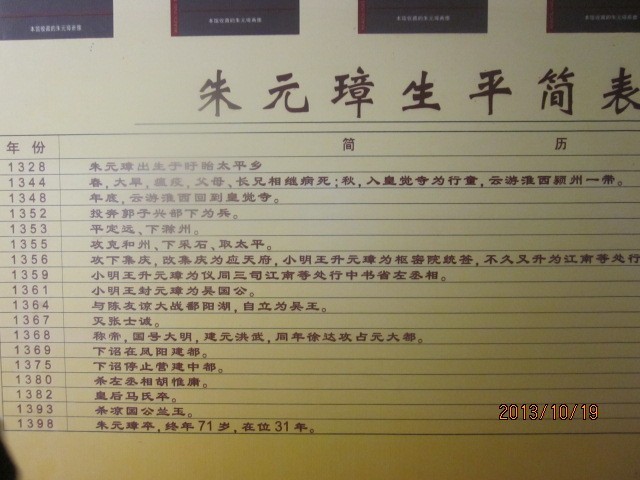 本馆收藏的朱元璋画像
本馆收藏的朱元璋画像
本馆收藏的朱元璋画像
朱元璋生平简表
年份 简历
1328 朱元璋出生于盱眙太平乡
1344 春，大旱，瘟疫，父母、长兄相继病死；秋，入皇觉寺为行童，云游淮西颍州一带。
1348 年底，云游淮西回到皇觉寺。
1352 投奔郭子兴部下为兵。
1353 平定远、下滁州。
1355 攻克和州、下采石、取太平。
1356 攻下集庆，改集庆为应天府，小明王升元璋为枢密院统签，不久又升为江南等处行
1359 小明王升元璋为仪同三司江南等处行中书省左丞相。
1361 小明王封元璋为吴国公。
1364 与陈友谅大战鄱阳湖，自立为吴王。
1367 灭张士诚。
1368 称帝，国号大明，建元洪武，同年徐达攻占元大都。
1369 下诏在凤阳建都。
1375 下诏停止营建中都。
1380 杀左丞相胡惟庸。
1382 皇后马氏卒。
1393 杀凉国公兰玉。
1398 朱元璋卒，终年71岁，在位31年。
2013/10/19